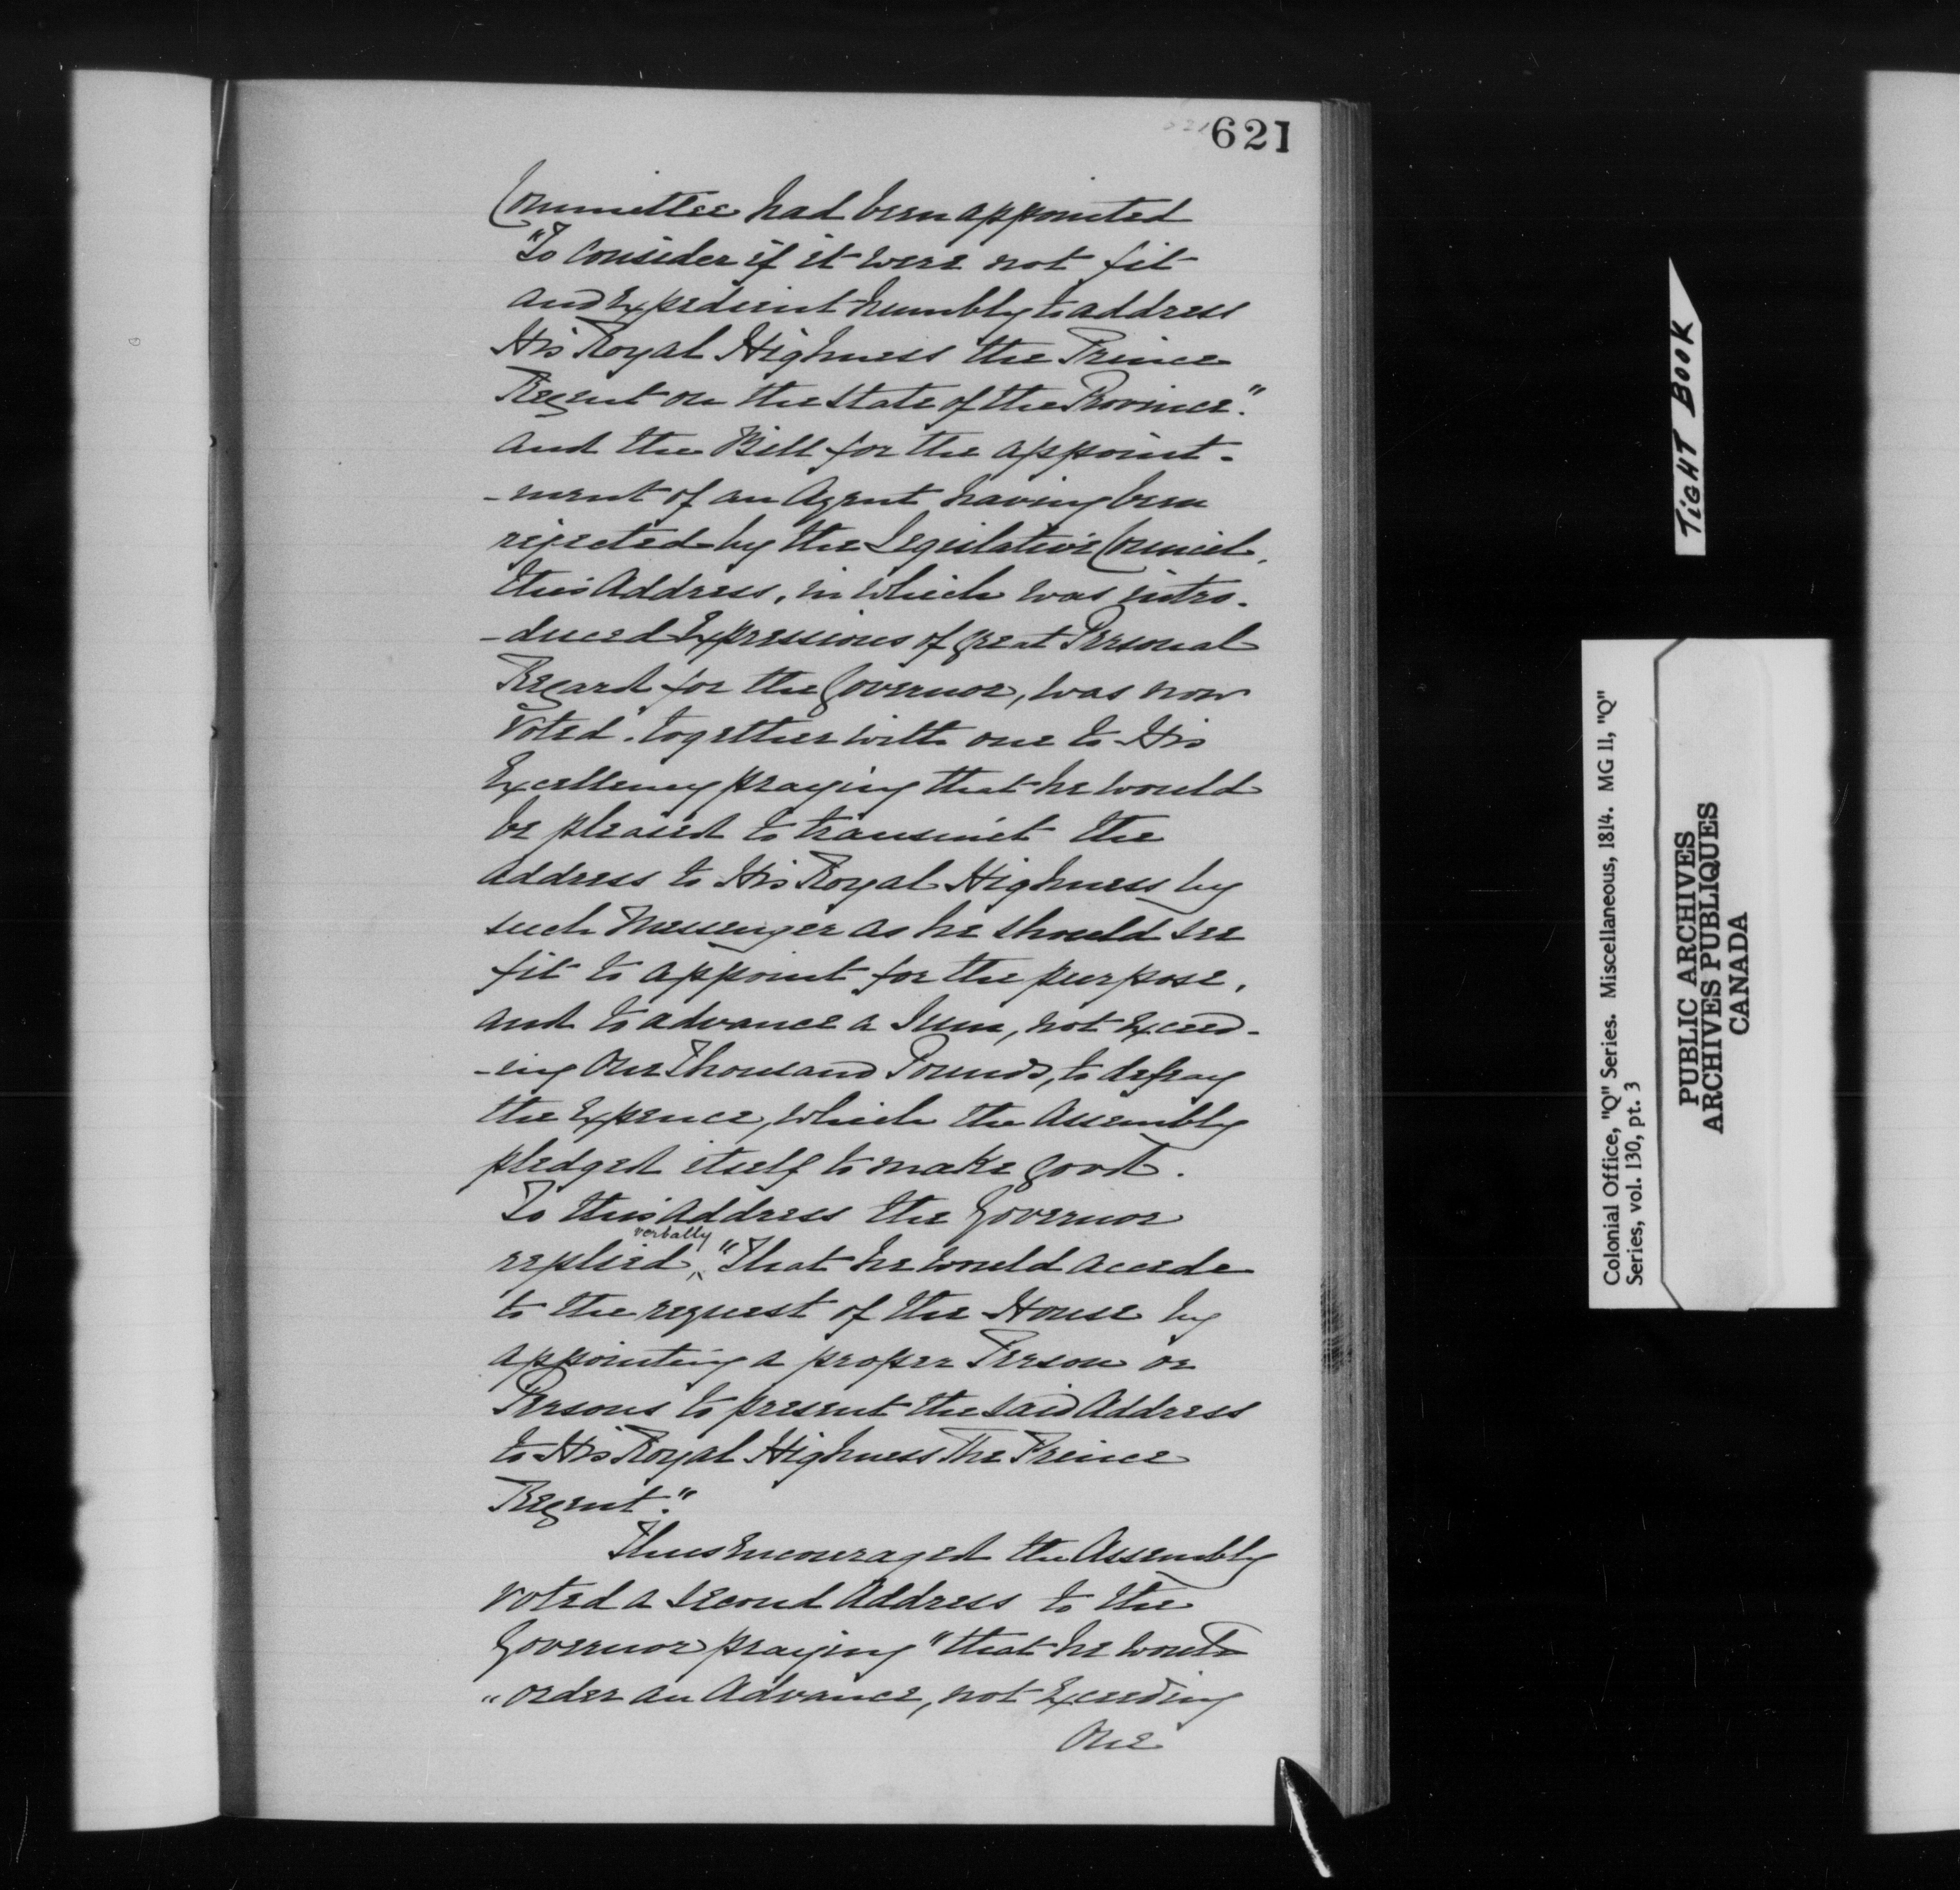 621
Committee had been appointed
"To Consider if it were not fit
and Expedient humbly to address
His Royal Highness the Prince
Regent on the State of the Province."
And the Bill for the appoint-
-ment of an Agent having been
rejected by the Legislative Council,
this Address, in which was intro-
-duced Expressions of great Personal
Regard for the Governor, was now
voted, together with one to His
Excellency praying that he would
be pleased to transmit the
Address to His Royal Highness by
such Messenger as he should see
fit to appoint for the purpose,
and to advance a Sum, not Exceed-
-ing One Thousand Pounds, to defray
the Expence, which the Assembly
pledged itself to make good.
To this Address the Governor
verbally
replied, "That he would accede
to the request of the House by
appointing a proper Person or
Persons to present the said Address
to His Royal Highness The Prince
Regent."
Thus Encouraged the Assembly
voted a second Address to the
Governor praying "that he would
"order an Advance, not Exceeding
One
TIGHT BOOK
Colonial Office, "Q" Series. Miscellaneous, 1814. MG 11, "Q"
Series, vol. 130, pt. 3
PUBLIC ARCHIVES
ARCHIVES PUBLIQUES
CANADA